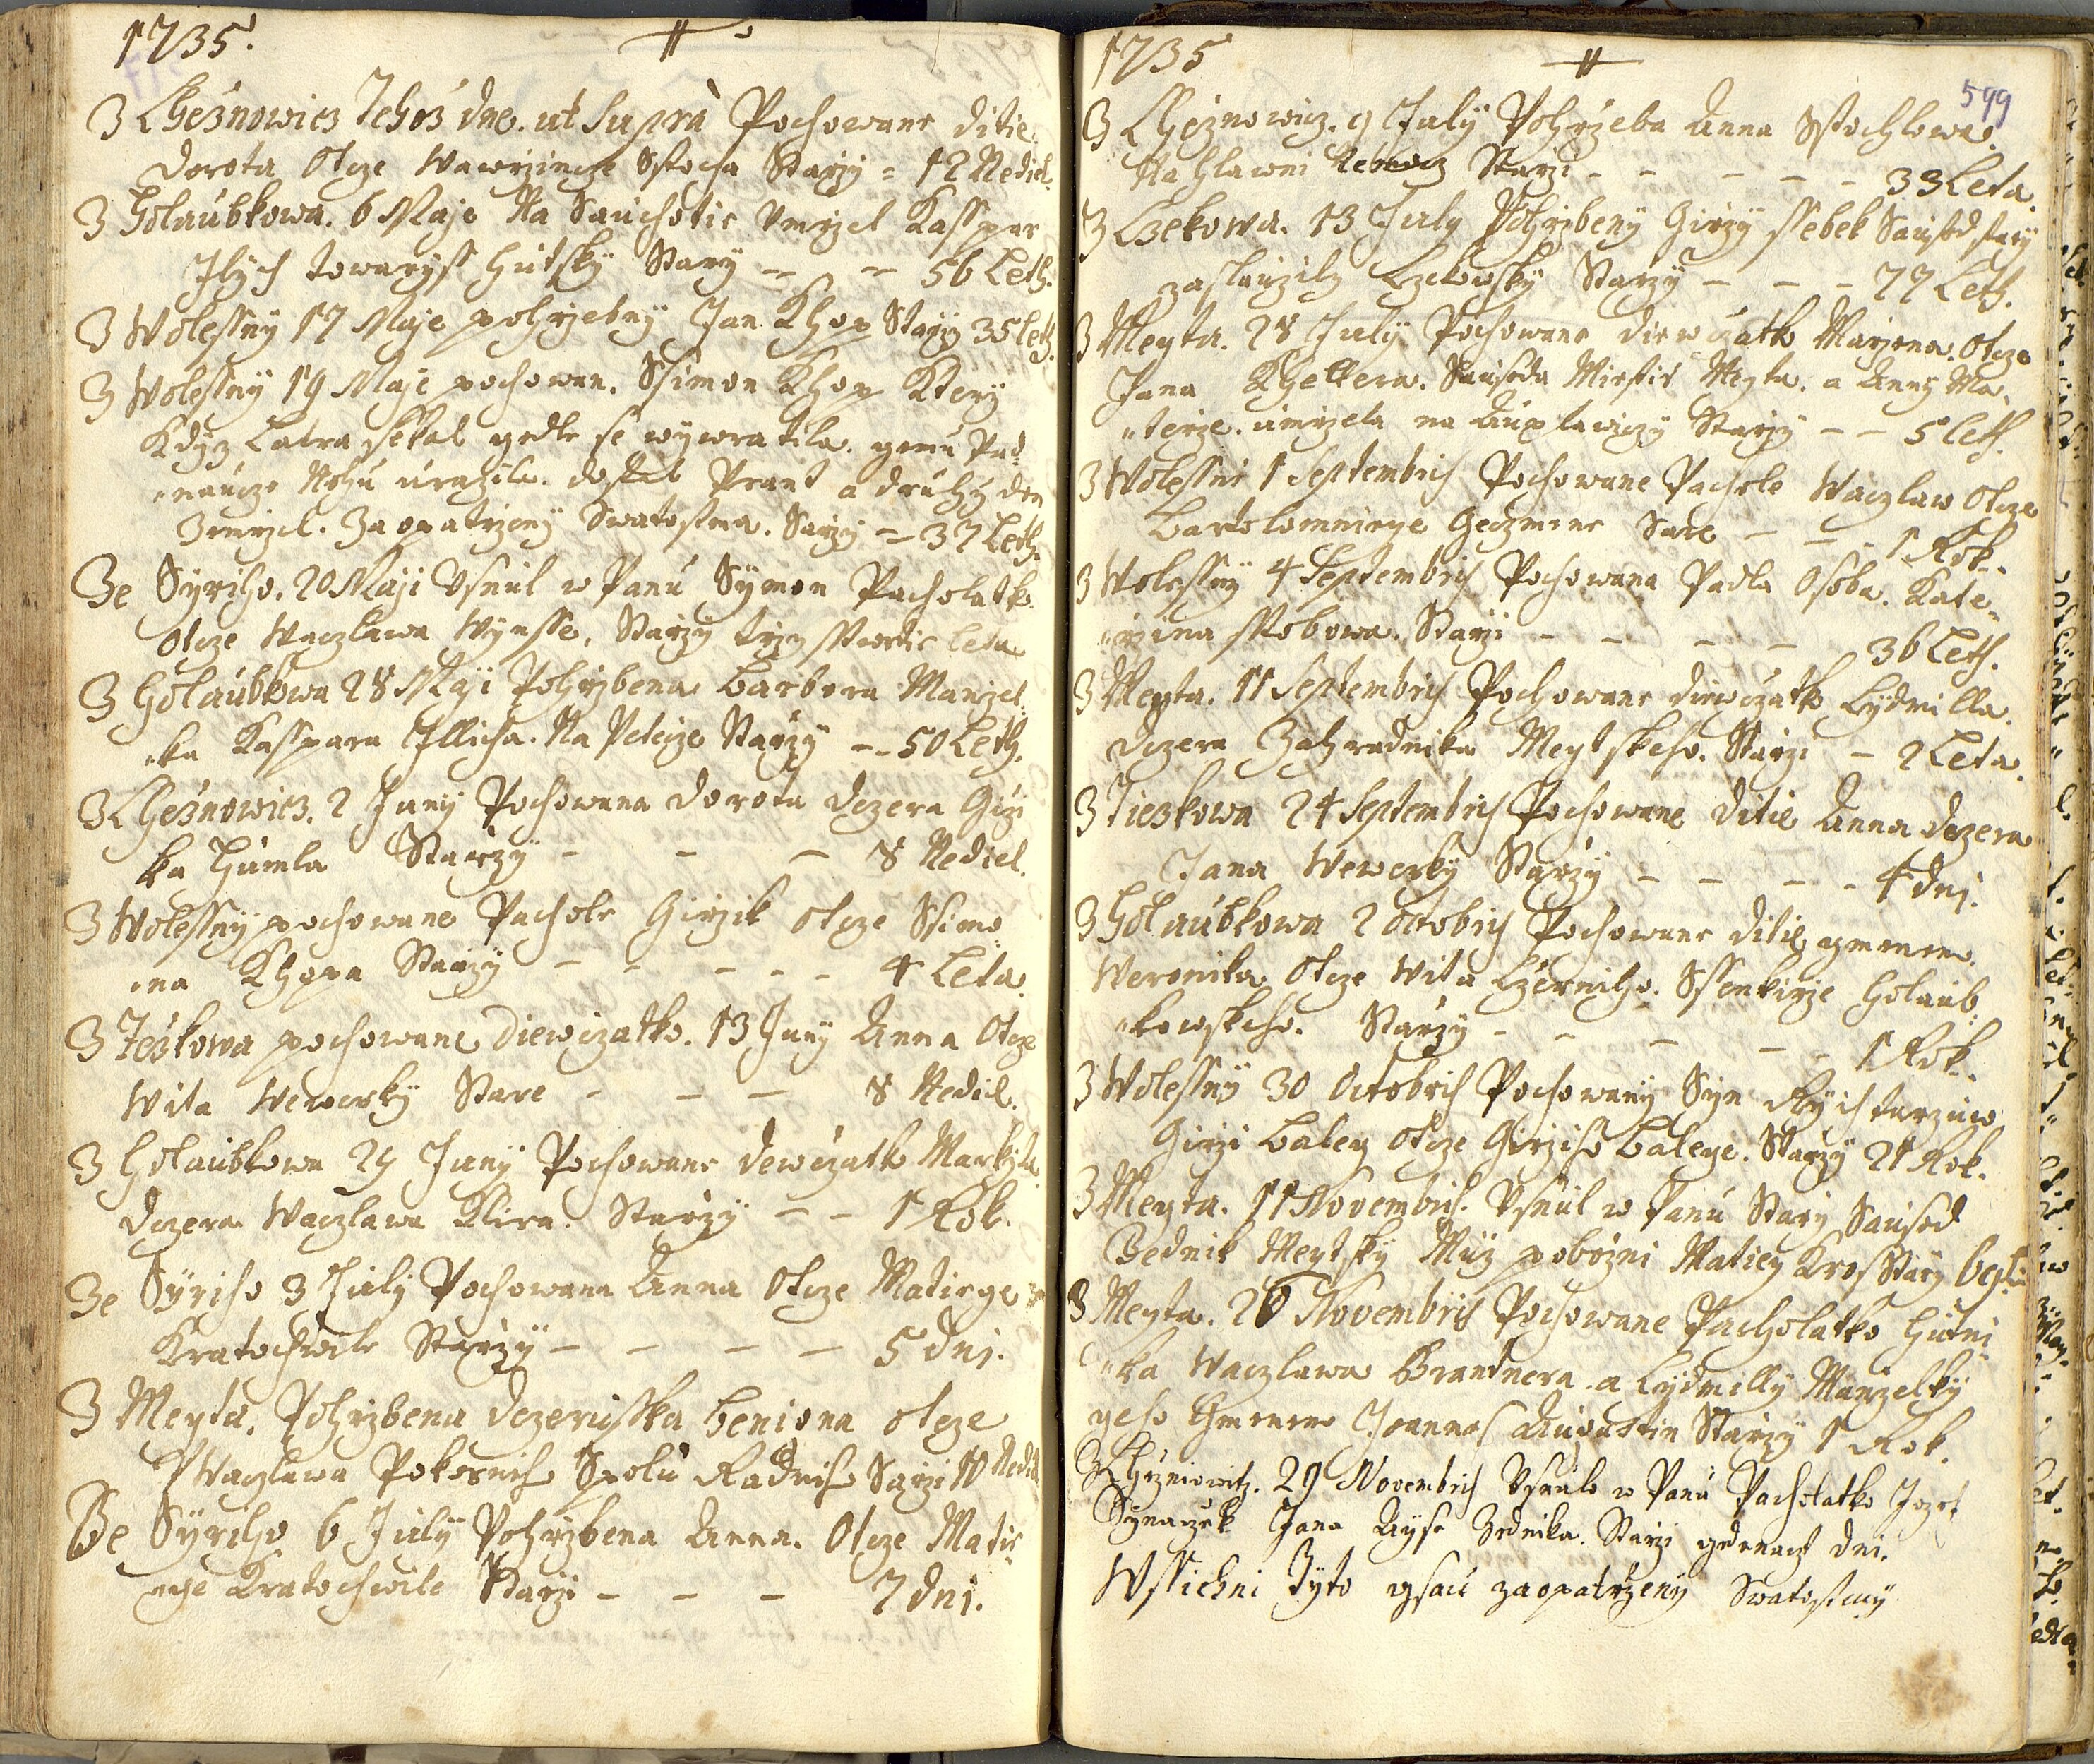 1735.
Z Cheznowicz Tehoz dne. ut Supra Pochowane ditie
Dorota Otcze Wawrzincze Sstocha Starzy = 12 Nediel.
Z Holaubkowa. 6 Maje Na Sauchotie Vmrzel Kasspar
Jlych towaryss Hutsky Stary - - 56 Leth.
Z Wolessny 17 Maje pohrzebny Jan Khop Starzy 35 leth.
Z Wolessny 19 Maje pochowan. Ssimon Khop Kteny
Kdyz Latra sekal gedle se wywratila. gemu Pad-
naucze Nohu urazila. dostal Prant a druhy den
Zemrzel. Zaopatrzeny Swatostma. Sarzy = 37 Leth.
Ze Syryho. 20 Maji Vsnul w Panu Symon Pacholatko
Otcze Waczlawa Wynsse. Starzy trzy sstwrtie leta
Z Holaubkowa 28 Maji Pohrzbena Barbora Manzel-
ka Kasspara Jllicha. Na Peteze Starzy - - 50 Leth.
Z Cheznowicz. 2 Juny Pochowana Dorota Dczera Girzi
ka Humla Starzy - - - 8 Nediel.
Z Wolessny pochowane Pachole Girzik otcze Ssimo-
na Khopa Starzy - - - - 4 Leta.
Z Teskowa pochowane Diewczatko. 13 Juny Anna Otcze
Wita Wewerky Stare - - - 8 Nediel.
Z Holaubkowa 29 Juny Pochowane Dewczatko Markyta
Dczera Waczlawa Klira. Starzy - - 1 Rok.
Ze Syriho 3 July Pochowana Anna Otcze Matiege
Kratochwile Starzy - - - - 5 dnj.
Z Meyta. Pohrzbena Dczerusska Beniona otcze
Waczlawa Pokorniho Spolu Radniho Sarzi 10 Nedil
Ze Syryho 6 July Pohrzbena Anna. Otcze Matie-
ge Kratochwile Starzi - - - 7 dnj.
1735
599
Z Cheznowicz. 9 July Pohrzeba Anna Sstochlowa.
Na Hlawni Nemocz Starzi - - - - - 33 Leta.
Z Czekowa. 13 July Pohrzbeny Girzy ssebek Saused stary
zaslauzily Czekowsky Starzy - - - 77 Leth.
Z Meyta. 28 July Pochowane Diewczatko Marjena. Otcze
Jana Khellera. Sauseda Miestie Meyta. a Anny Ma-
terze. umrzela na Auplawiczy Starzy - - 5 leth.
Z Wolessni 1 Septembris Pochowane Pachole Waczlaw Otcze
Bartolomnieye Geczmene Sare - - - 1 Rok.
Z Wolessny 4 Septembris Pochowana Padla Osoba. Kate-
rzina sstobowa. Starzi - - - - 36 Leth.
Z Meyta. 11 Septembris Pochowane Diewczatko Lydmilla.
Dczera Zahradnika Meytskeho. Starzi - 2 Leta.
Z Tieskowa 24 Septembris Pochowane ditie Anna Dczera
Jana Wewerky Starzy - - - - 4 dnj.
Z Holaubkowa 2 Octobris Pochowane ditie gmenem.
Weronika Otcze Wita Czerniho. Ssenkirze Holaub-
kowskeho. Starzy - - - - - 1 Rok.
Z Wolessny 30 Octobris Pochowany Syn Rychtarzuw
Girzi Baley Otcze Girziho Baleye. Starzy 21 Rok.
Z Meyta. 11 Novembris. Vsnul w Panu Stary Saused
Zednik Meytsky Muz pobozni Matiey Kros Stary
Z Meyta. 26 Novembris Pochowane Pacholatko Hutni
ka Waczlawa Brandnera. a Lydmilly Manzelky
geho Gmenem Joannes Augustin Starzy 1 Rok.
Z Cheznowitz. 29 Novembris Vsnulo w Panu Pacholatko Jozef
Synaczek Jana Ayse Zednika. Starzi gedenacz dni.
Wssichni Tyto gsau zaopatrzeny Swatostmy